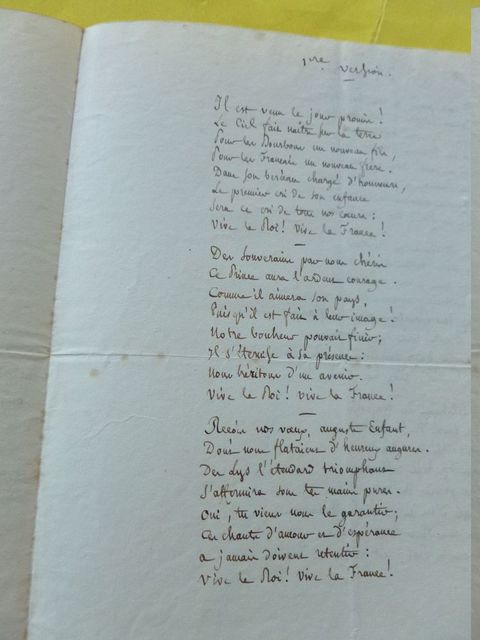 1re version.
Il est venu le jour promis !
Le Ciel fait naître sur la terre
Pour les Bourbons un nouveau fils,
Pour les Français un nouveau frère.
Dans son berceau chargé d'honneurs,
Le premier cri de son enfance
Sera ce cri de tous nos cœurs :
Vive le Roi ! Vive la France !
Des Souverains par nous chéris
Ce Prince aura l'ardent courage.
Comme il aimera son pays,
Puisqu'il est fait à leur image !
Notre bonheur pouvait finir ;
Il s'étend à sa présence :
Nous héritons d'un avenir.
Vive le Roi ! vive la France !
Reçois nos vœux, auguste Enfant,
Dont nous flattaient d'heureux augures.
Des Lys l'étendard triomphant
S'affermira sous tes mains pures.
Oui, tu viens nous le garantir ;
Ces chants d'amour et d'espérance
à jamais doivent retentir :
Vive le Roi ! Vive la France !